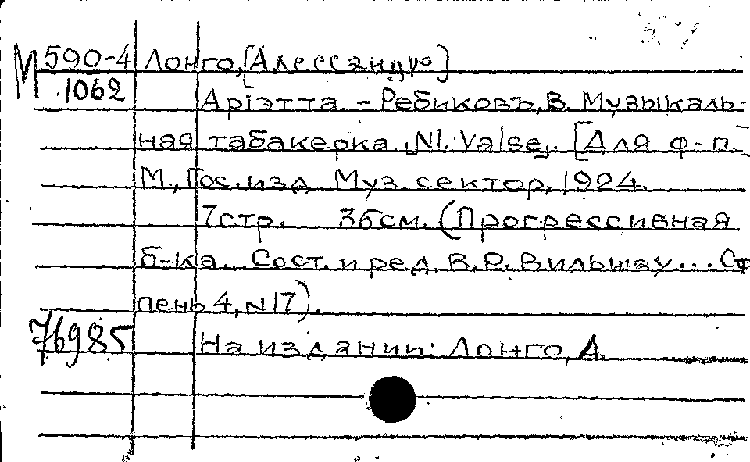 М 590-4 Лонго, [Алессандро]
1062
Арiэтта. – Ребиковъ, В. Музыкаль-
ная табакерка. „N1. Valse„. [Для ф-п.
М., Гос. изд. Муз. сектор, 1924.
7стр. 35см. (Прогрессивная
б-ка. Сост. и ред. В.Р. Вильшау... Ст
пень 4, N17).
76985 На издании: Лонго, А.